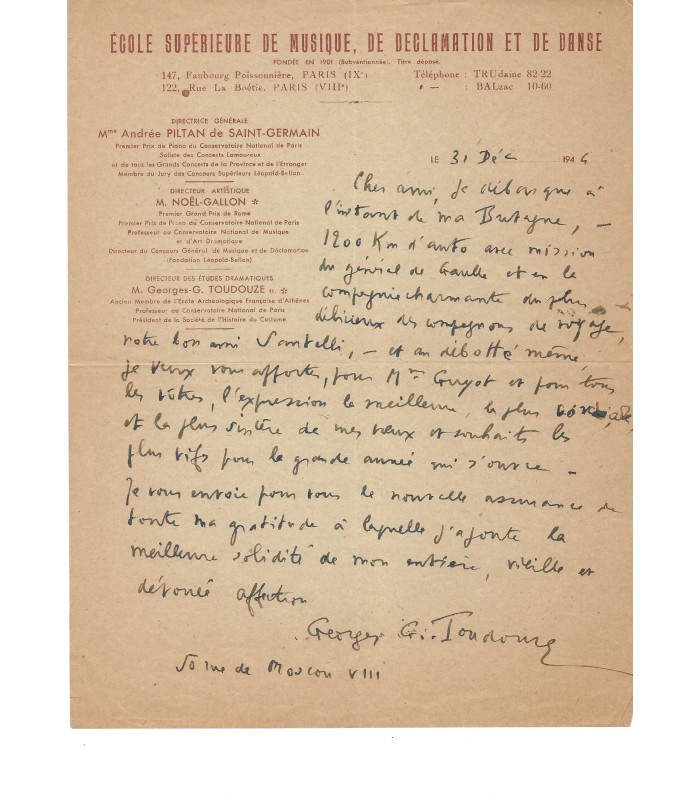 ÉCOLE SUPÉRIEURE DE MUSIQUE, DE DECLAMATION ET DE DANSE
FONDÉE EN 1901 (Subventionnée). Titre déposé.
147, Faubourg Poissonnière, PARIS (IXe) Téléphone : TRUdaine 82-22
122, Rue La Boétie, PARIS (VIIIe) — : BALzac 10-60
DIRECTRICE GÉNÉRALE
Mme Andrée PILTAN de SAINT-GERMAIN
Premier Prix de Piano du Conservatoire National de Paris
Soliste des Concerts Lamoureux
et de tous les Grands Concerts de la Province et de l'Etranger
Membre du Jury des Concours Supérieurs Léopold-Bellan
DIRECTEUR ARTISTIQUE
M. NOËL-GALLON *
Premier Grand Prix de Rome
Premier Prix de Piano du Conservatoire National de Paris
Professeur au Conservatoire National de Musique
et d'Art Dramatique
Directeur du Concours Général de Musique et de Déclamation
(Fondation Léopold-Bellan)
DIRECTEUR DES ÉTUDES DRAMATIQUES
M. Georges-G. TOUDOUZE O. *
Ancien Membre de l'Ecole Archéologique Française d'Athènes
Professeur au Conservatoire National de Paris
Président de la Société de l'Histoire du Costume
LE 31 Déc 1946
Cher ami, je débarque à
l'instant de ma Bretagne, —
1200 Km d'auto avec mission
du général de Gaulle et en la
compagnie charmante du plus
délicieux des compagnons de voyage,
notre bon ami Santelli, — et au débotté même,
je veux vous apporter, pour Mme Guyot et pour tous
les vôtres, l'expression la meilleure, la plus cordiale,
et la plus sincère de mes vœux et souhaits les
plus vifs pour la grande année qui s'ouvre —
Je vous envoie pour vous la nouvelle assurance de
toute ma gratitude à laquelle j'ajoute la
meilleure solidité de mon entière, vieille et
dévouée affection
Georges G. Toudouze
50 rue de Moscou VIII